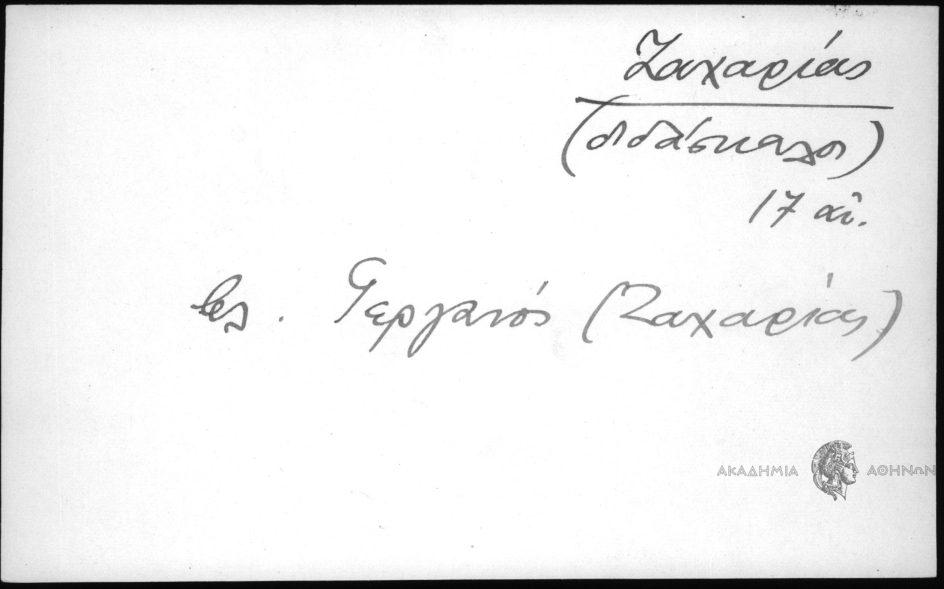 Ζαχαρίας
(διδάσκαλος)
17 αἰ.
βλ. Γεργανός (Ζαχαρίας)
ΑΚΑΔΗΜΙΑ ΑΘΗΝΩΝ